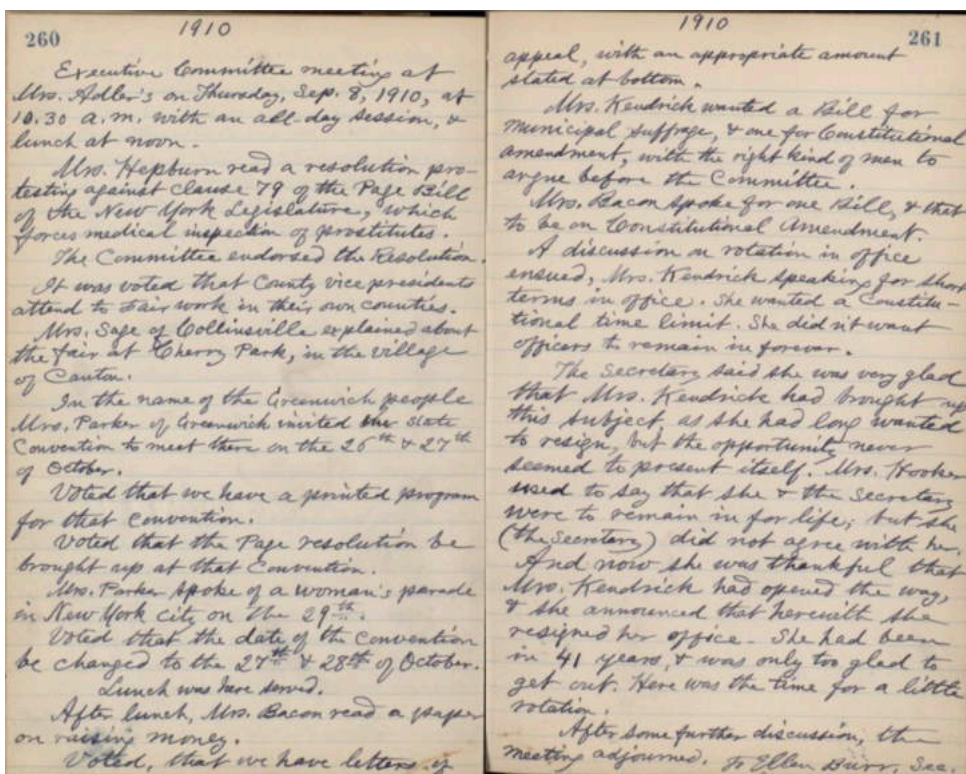 260
1910
Executive Committee meeting at
Mrs. Adler's on Thursday, Sep. 8, 1910, at
10.30 a.m. with an all-day session, &
lunch at noon.
Mrs. Hepburn read a resolution pro-
testing against clause 79 of the Page Bill
of the New York Legislature, which
forces medical inspection of prostitutes.
The Committee endorsed the Resolution.
It was voted that County vice presidents
attend to Fair work in their own counties.
Mrs. Sage of Collinsville explained about
the fair at Cherry Park, in the village
of Canton.
In the name of the Greenwich people
Mrs. Parker of Greenwich invited the State
Convention to meet there on the 26th & 27th
of October.
Voted that we have a printed program
for that convention.
Voted that the Page resolution be
brought up at that Convention.
Mrs. Parker spoke of a woman's parade
in New York city on the 29th.
Voted that the date of the Convention
be changed to the 27th & 28th of October.
Lunch was here served.
After lunch, Mrs. Bacon read a paper
on raising money.
Voted, that we have letters of
1910
261
appeal, with an appropriate amount
stated at bottom.
Mrs. Kendrick wanted a Bill for
Municipal Suffrage, & one for Constitutional
amendment, with the right kind of men to
argue before the Committee.
Mrs. Bacon spoke for one Bill, & that
to be on Constitutional Amendment.
A discussion on rotation in office
ensued, Mrs. Kendrick speaking for short
terms in office. She wanted a Constitu-
tional time limit. She didn't want
officers to remain in forever.
The Secretary said she was very glad
that Mrs. Kendrick had brought up
this subject, as she had long wanted
to resign, but the opportunity never
seemed to present itself. Mrs. Hooker
used to say that she & the Secretary
were to remain in for life; but she
(the Secretary) did not agree with her.
And now she was thankful that
Mrs. Kendrick had opened the way,
& she announced that herewith she
resigned her office - She had been
in 41 years, & was only too glad to
get out. Here was the time for a little
rotation.
After some further discussion, the
meeting adjourned. Ellen Burr, Sec.